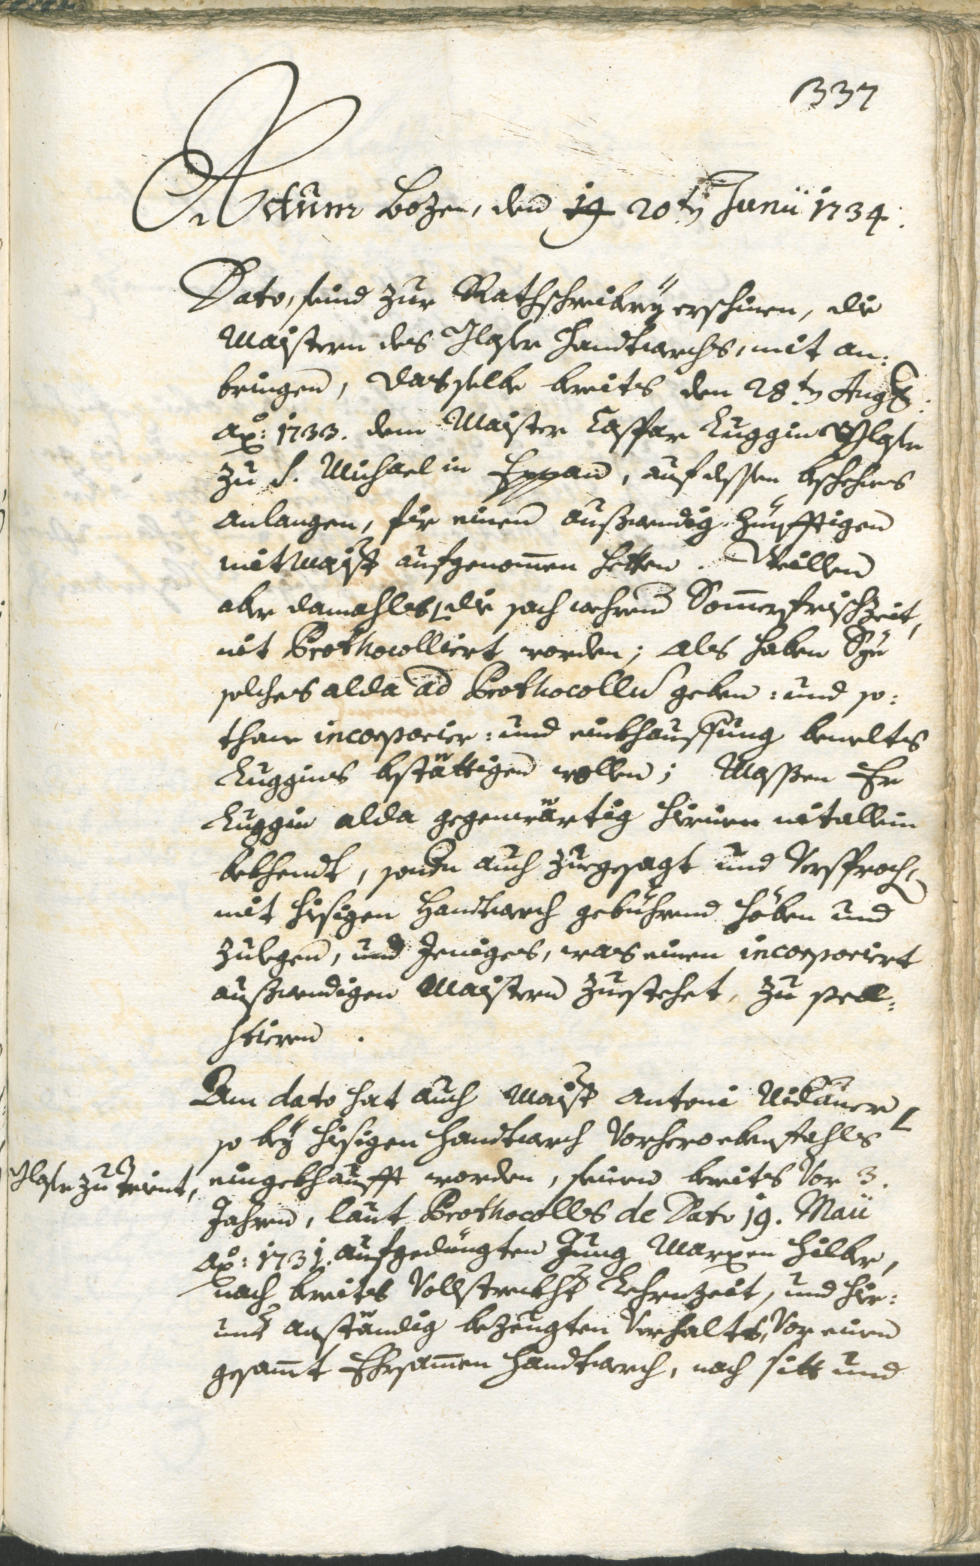 337
Actum Bozen, den 19 20ten Junii 1734.
Dato, seind zur Rathschreiberey erschinen, die
Maistern des Glaser Handtwerchs, mit an¬
bringen, das selbe bereits den 28ten Aug
ao: 1733. dem Maister Caspar Luggin Glaser
zu S. Michael in Eppan, auf dessen beschehnes
anlangen, für einen außwendig Zünfftigen
mitmaister aufgenomen hetten. Weillen
aber damahls, die sach wehrend Somerfrischzeit,
nit Prothocolliert worden; als haben Sye
solches alda ad Prothocollum geben: und so¬
thane incorporier: und einkhauffung bemeltes
Luggins bestättigen wollen; Massen Er
Luggin alda gegenwärtig hierinen nit allein
bekhendt, sondern auch zuegesagt und Versprochen
mit hisigen Handtwerch gebührend heben und
zulegen, und Jeniges, was einen incorporiert
außwendigen Maistern zuestehet, zu praes¬
stieren.
Eum dato hat auch Maister Antoni Nidauer
so bey hisigen Handtwerch Vorhero ebenfahls
Glaser zu Trient,
eingekhaufft worden, seinen bereits Vor 3.
Jahren, laut Prothocolls de Dato 19. Maii
ao: 1731. aufgedüngten Jung Marxen Hilber,
nach bereits Vollstreckhter Lehrnzeit, und hier¬
inen anständig bezeugten Verhalts, Vor einen
gesamt Ehrsamen Handtwerch, nach sitt und